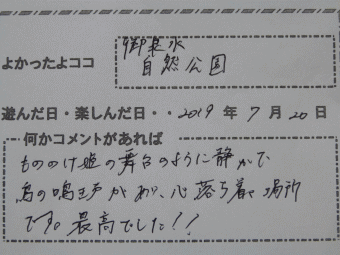 よかったよココ
御泉水
自然公園
遊んだ日・楽しんだ日・・2019年7月20日
何かコメントがあれば
もののけ姫の舞台のように静かで
鳥の鳴き声があり、心落ち着く場所
です。最高でした!!